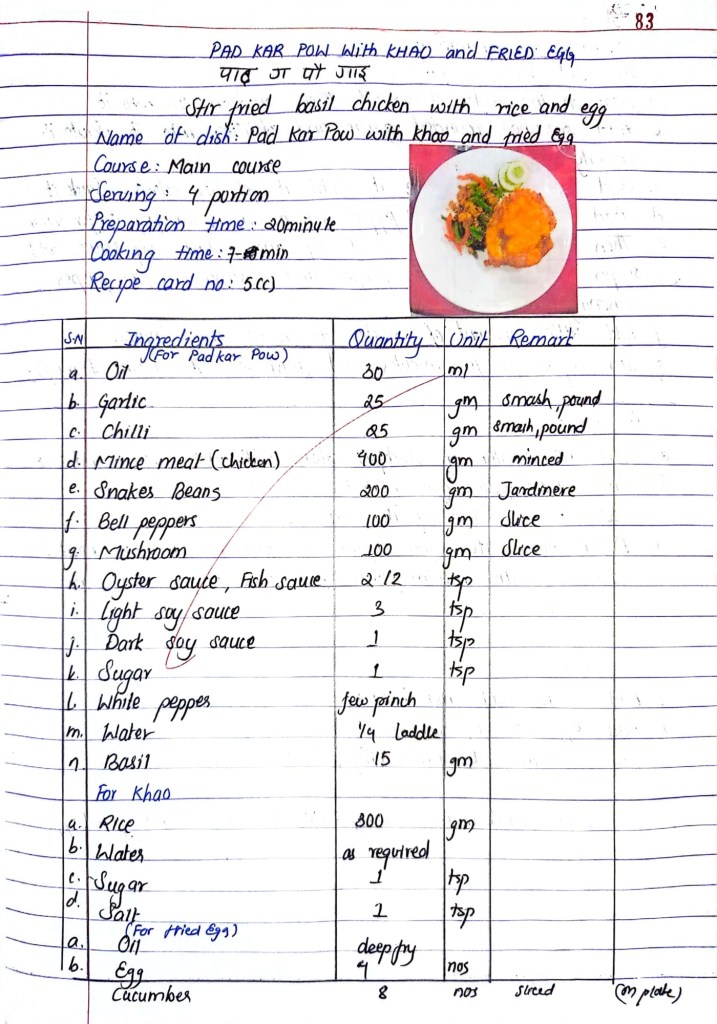 83
PAD KAR POW With KHAO and FRIED EGG
पाद ग पौ गाइ
Stir fried basil chicken with rice and egg
Name of dish: Pad Kar Pow with khao and fried Egg
Course: Main course
Serving: 4 portion
Preparation time: 20minute
Cooking time: 7-8min
Recipe card no: 5cc)
S.N Ingredients Quantity Unit Remark
(For Padkar Pow)
a. Oil 30 ml
b. Garlic 25 gm smash, pound
c. Chilli 25 gm smash, pound
d. Mince meat (chicken) 400 gm minced
e. Snakes Beans 200 gm Jardinere
f. Bell peppers 100 gm slice
g. Mushroom 100 gm slice
h. Oyster sauce, Fish sauce 2 /2 tsp
i. light soy sauce 3 tsp
j. Dark soy sauce 1 tsp
k. Sugar 1 tsp
l. White pepper few pinch
m. Water 1/4 laddle
n. Basil 15 gm
For Khao
a. Rice 300 gm
b. Water as required
c. Sugar 1 tsp
d. Salt 1 tsp
(For fried Egg)
a. Oil deep fry
b. Egg 4 nos
Cucumber 8 nos sliced (in plate)